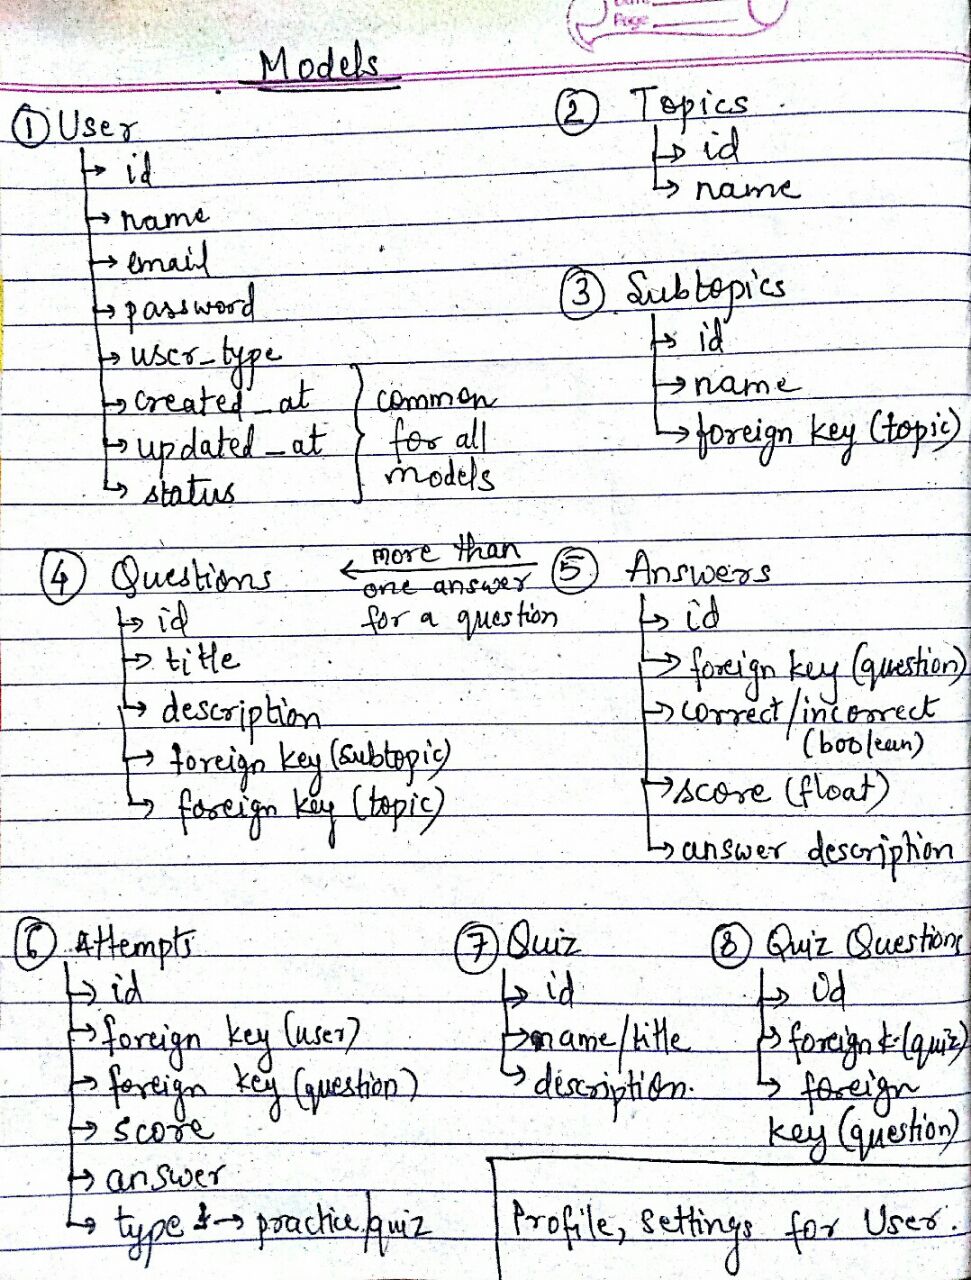 Page
Models
① User
→ id
→ name
→ email
→ password
→ user_type
→ created_at
→ updated_at
→ status
common
for all
models
② Topics
→ id
→ name
③ Subtopics
→ id
→ name
→ foreign key (topic)
④ Questions
→ id
→ title
→ description
→ foreign key (subtopic)
→ foreign key (topic)
← more than
one answer
for a question
⑤ Answers
→ id
→ foreign key (question)
→ correct/incorrect
(boolean)
→ score (float)
→ answer description
⑥ Attempts
→ id
→ foreign key (user)
→ foreign key (question)
→ score
→ answer
→ type → practice/quiz
⑦ Quiz
→ id
→ name/title
→ description.
⑧ Quiz Questions
→ id
→ foreign k. (quiz)
→ foreign
key (question)
Profile, settings for User.